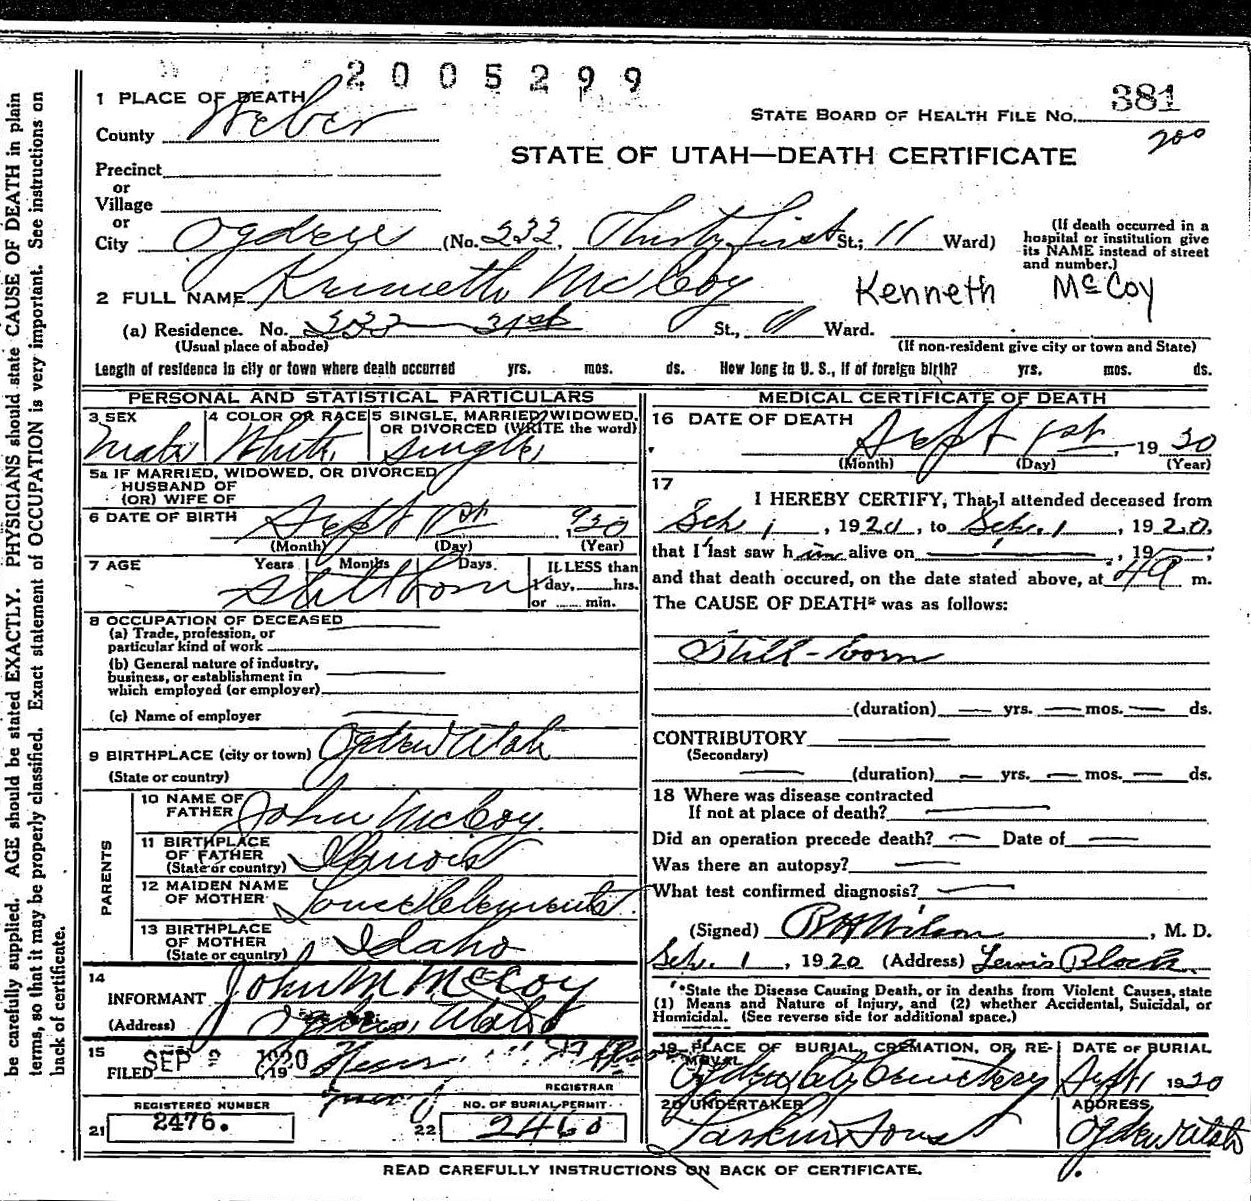 2005299
1 PLACE OF DEATH
County Weber
STATE BOARD OF HEALTH FILE NO. 381
200
STATE OF UTAH—DEATH CERTIFICATE
Precinct
or
Village
or
City Ogden (No. 233, Thirty first St; 11 Ward)
(If death occurred in a hospital or institution give its NAME instead of street and number.)
2 FULL NAME Kenneth McCoy
Kenneth McCoy
(a) Residence. No. 233 31st St., 11 Ward.
(Usual place of abode) (If non-resident give city or town and State)
Length of residence in city or town where death occurred yrs. mos. ds. How long in U. S., if of foreign birth? yrs. mos. ds.
PERSONAL AND STATISTICAL PARTICULARS
3 SEX Male
4 COLOR OR RACE White
5 SINGLE, MARRIED, WIDOWED, OR DIVORCED (WRITE the word) Single
5a IF MARRIED, WIDOWED, OR DIVORCED
HUSBAND OF
(OR) WIFE OF
6 DATE OF BIRTH Sept 1st 1920
(Month) (Day) (Year)
7 AGE Years Months Days If LESS than
1 day, hrs.
or min.
Stillborn
8 OCCUPATION OF DECEASED
(a) Trade, profession, or
particular kind of work
(b) General nature of industry,
business, or establishment in
which employed (or employer)
(c) Name of employer
9 BIRTHPLACE (city or town) Ogden Utah
(State or country)
PARENTS
10 NAME OF FATHER John McCoy
11 BIRTHPLACE OF FATHER (State or country) Illinois
12 MAIDEN NAME OF MOTHER Clements
13 BIRTHPLACE OF MOTHER (State or country) Idaho
14 INFORMANT John M McCoy
(Address) Ogden, Utah
15 FILED SEP 1920
REGISTRAR
21 REGISTERED NUMBER 2476.
22 NO. OF BURIAL PERMIT 2460
MEDICAL CERTIFICATE OF DEATH
16 DATE OF DEATH Sept 1st, 1920
(Month) (Day) (Year)
17 I HEREBY CERTIFY, That I attended deceased from
Sept. 1, 1920, to Sept. 1, 1920,
that I last saw him alive on , 19 ;
and that death occured, on the date stated above, at m.
The CAUSE OF DEATH* was as follows:
Still-born
(duration) yrs. mos. ds.
CONTRIBUTORY
(Secondary)
(duration) yrs. mos. ds.
18 Where was disease contracted
If not at place of death?
Did an operation precede death? Date of
Was there an autopsy?
What test confirmed diagnosis?
(Signed) Wilson, M. D.
Sept. 1, 1920 (Address) Lewis Block
*State the Disease Causing Death, or in deaths from Violent Causes, state
(1) Means and Nature of Injury, and (2) whether Accidental, Suicidal, or
Homicidal. (See reverse side for additional space.)
19 PLACE OF BURIAL, CREMATION, OR REMOVAL Ogden City Cemetery
DATE OF BURIAL Sept 1 1920
20 UNDERTAKER Larkin & Sons
ADDRESS Ogden Utah
READ CAREFULLY INSTRUCTIONS ON BACK OF CERTIFICATE.
be carefully supplied. AGE should be stated EXACTLY. PHYSICIANS should state CAUSE OF DEATH in plain
terms, so that it may be properly classified. Exact statement of OCCUPATION is very important. See instructions on
back of certificate.